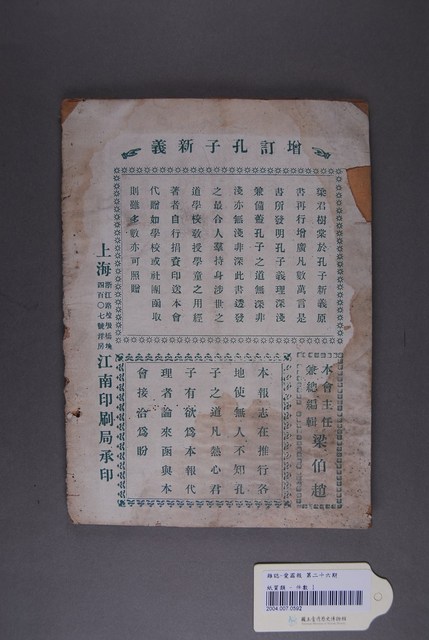 增訂孔子新義
梁君樹棠於孔子新義原
書再行增廣凡數萬言是
書所發明孔子義理深淺
兼備蓋孔子之道無深非
淺亦無淺非深此書透發
之最合人羣持身涉世之
道學校教授學童之用經
著者自行捐資印送本會
代贈如學校或社團函取
則雖多數亦可照贈
本會主任
兼總編輯
梁伯趙
本報志在推行各
地使無人不知孔
子之道凡熱心君
子有欲爲本報代
理者請來函與本
會接洽爲盼
上海
四百〇七號洋房
江南印刷局承印
雜誌-愛國報 第二十六期
紙質類 - 件數 1
2004.007.0592
國立臺灣歷史博物館